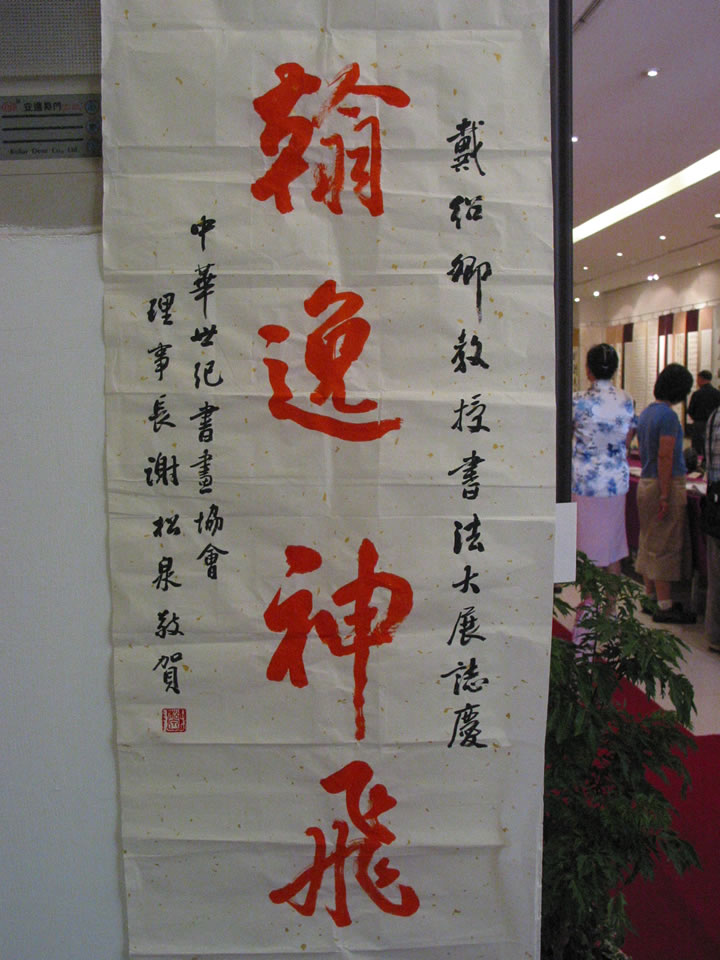 戴紹卿教授書法大展誌慶
翰逸神飛
中華世紀書畫協會
理事長謝松泉敬賀